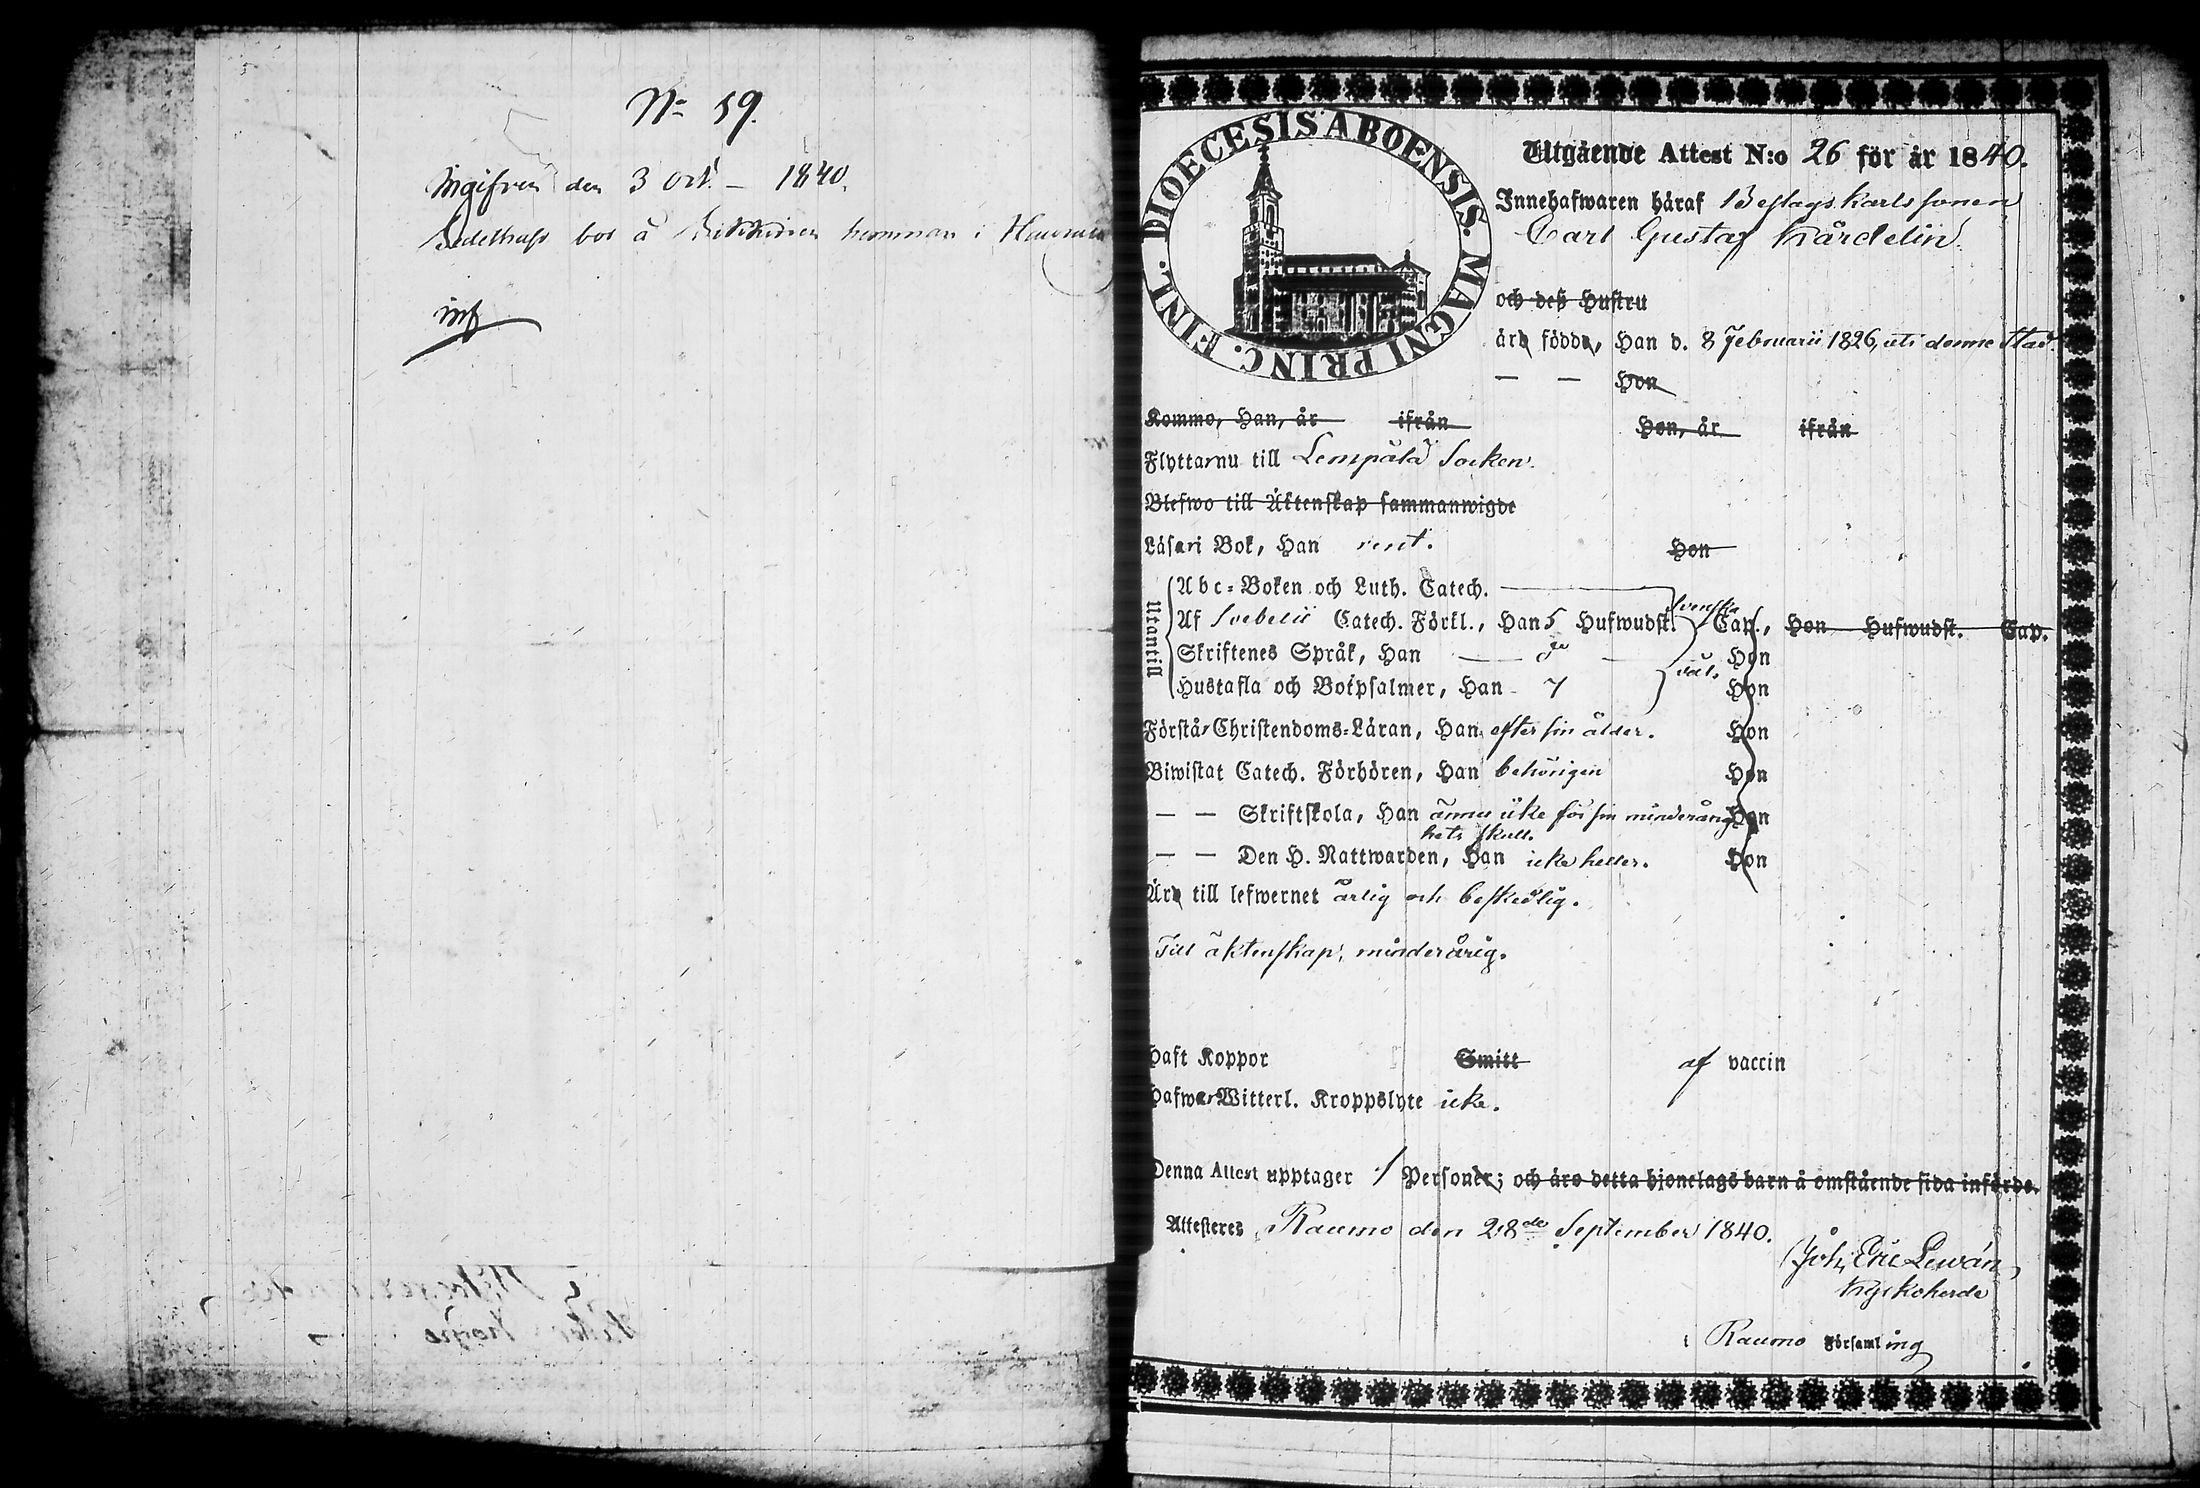 N: 59.
Ingifven den 3 Oct. – 1840.
bor å hemman i
inf
DIOECESIS ABOENSIS. MAGNI PRINC. FINL.
Utgående Attest N:o 26 för år 1840.
Innehafwaren häraf Beslagskarlssonen
Carl Gustaf Hårdelin
och deß Hustru
äro födde, Han d. 8 Februarii 1826, uti denne Stad.
— — Hon
Kommo, Han, år ifrån Hon, år ifrån
Flyttar nu till Lempälä Socken.
Blefwo till Äktenskap sammanwigde
Läser i Bok, Han rent. Hon
Utantill
Abc-Boken och Luth. Catech. Svenska
Af Svebelii Catech. Förkl., Han 5 Hufwudst. Cap., Hon Hufwudst. Cap.
Skriftenes Språk, Han — — Hon
väl.
Hustafla och Botpsalmer, Han 7 Hon
Förstår Christendoms-Läran, Han efter sin ålder. Hon
Biwistat Catech. Förhören, Han behörigen Hon
— — Skriftskola, Han ännu icke för sin minderårig- Hon
hets skull.
— — Den H. Nattwarden, Han icke heller. Hon
Äro till lefwernet ärlig och beskedlig.
Till äktenskap, minderårig.
Haft Koppor Smitt af vaccin
Hafwer Witterl. Kroppslyte icke.
Denna Attest upptager 1 Personer; och äro detta hjonelags barn å omstående sida införde.
Attesteres, Raumo den 28de September 1840.
Joh. Eric Lewán
Kyrkoherde
i Raumo Församling